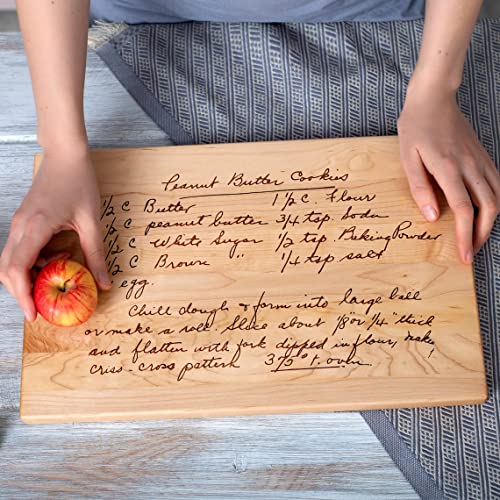 Peanut Butter Cookies
1/2 C Butter 1 1/2 C. Flour
1/2 C peanut butter 3/4 tsp. Soda
1/2 C White Sugar 1/2 tsp. Baking Powder
1/2 C Brown " 1/4 tsp salt
egg.
Chill dough & form into large ball
or make a roll. Slice about 1/8" or 1/4" thick
and flatten with fork dipped in flour, make
criss-cross pattern! 375° F. oven